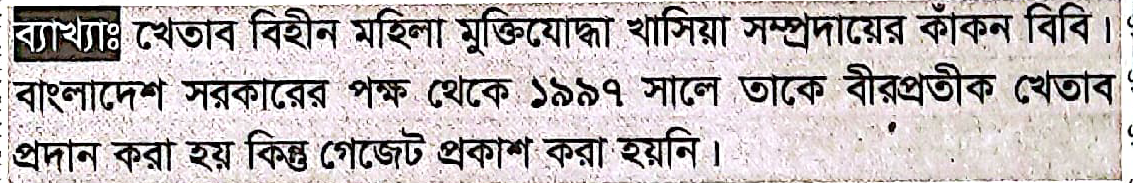 ব্যাখ্যাঃ খেতাব বিহীন মহিলা মুক্তিযোদ্ধা খাসিয়া সম্প্রদায়ের কাঁকন বিবি।
বাংলাদেশ সরকারের পক্ষ থেকে ১৯৯৭ সালে তাকে বীরপ্রতীক খেতাব
প্রদান করা হয় কিন্তু গেজেট প্রকাশ করা হয়নি।